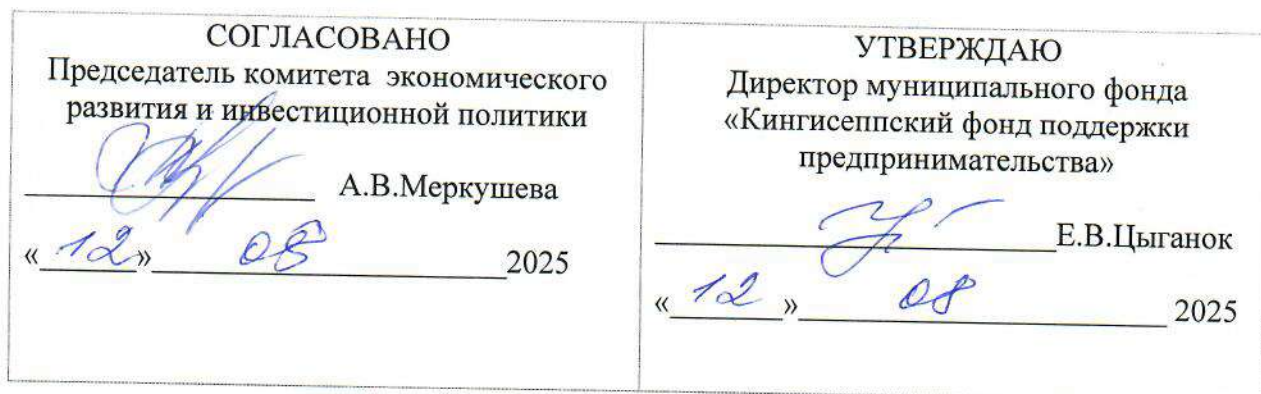 СОГЛАСОВАНО
Председатель комитета экономического
развития и инвестиционной политики
А.В.Меркушева
«12» 08 2025
УТВЕРЖДАЮ
Директор муниципального фонда
«Кингисеппский фонд поддержки
предпринимательства»
Е.В.Цыганок
«12» 08 2025